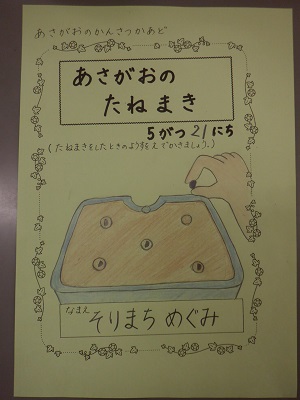 あさがおのかんさつかあど
あさがおの
たねまき
5がつ21にち
(たねまきをしたときのようすをえでかきましょう。)
なまえ
そりまち めぐみ